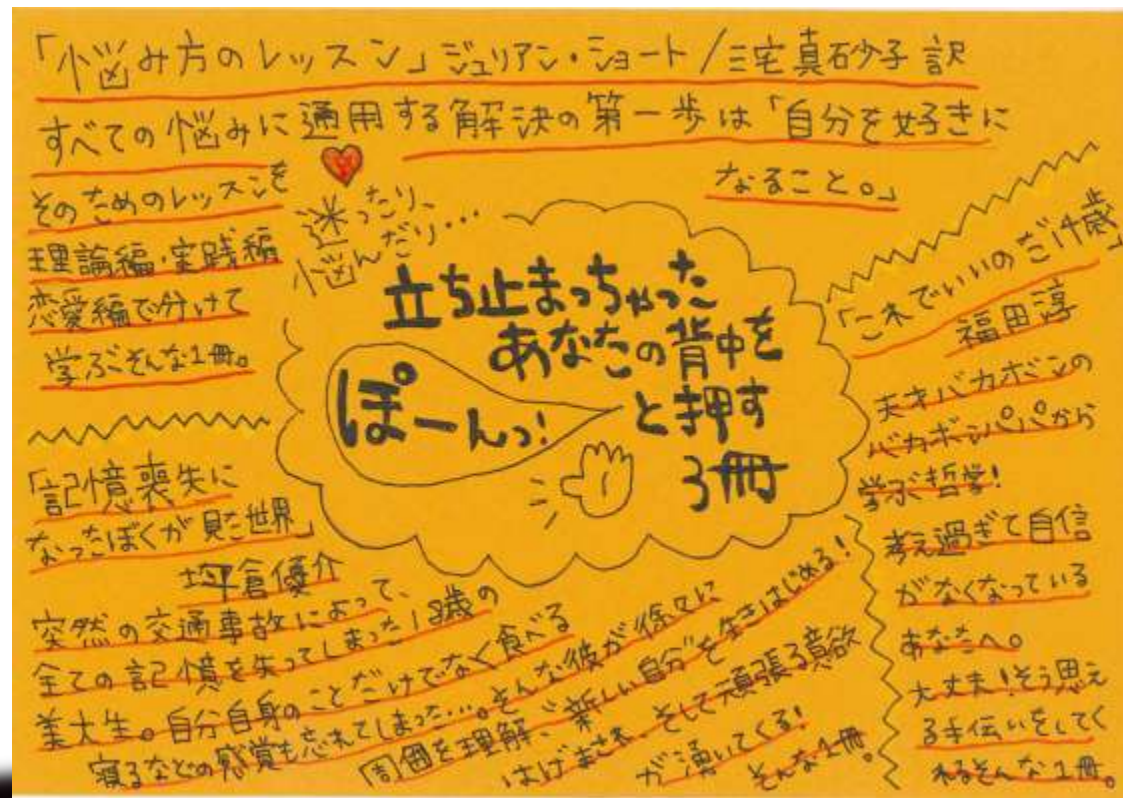 「悩み方のレッスン」ジュリアン・ショート/三宅真砂子 訳
すべての悩みに通用する解決の第一歩は「自分を好きに
なること。」
そのためのレッスンを
理論編・実践編
恋愛編で分けて
学ぶそんな1冊。
迷ったり、
悩んだり…
立ち止まっちゃった
あなたの背中を
ぽーんっ!
と押す
3冊
「これでいいのだ14歳」
福田淳
天才バカボンの
バカボンパパから
学ぶ哲学!
考え過ぎて自信
がなくなっている
あなたへ。
大丈夫!そう思え
る手伝いをしてく
れるそんな1冊。
「記憶喪失に
なったぼくが見た世界」
坪倉優介
突然の交通事故によって、
全ての記憶を失ってしまった18歳の
美大生。自分自身のことだけでなく食べる
寝るなどの感覚も忘れてしまった…。そんな彼が徐々に
周囲を理解、“新しい自分”を生きはじめる!
はげまされ、そして頑張る意欲
が湧いてくる!
そんな1冊。